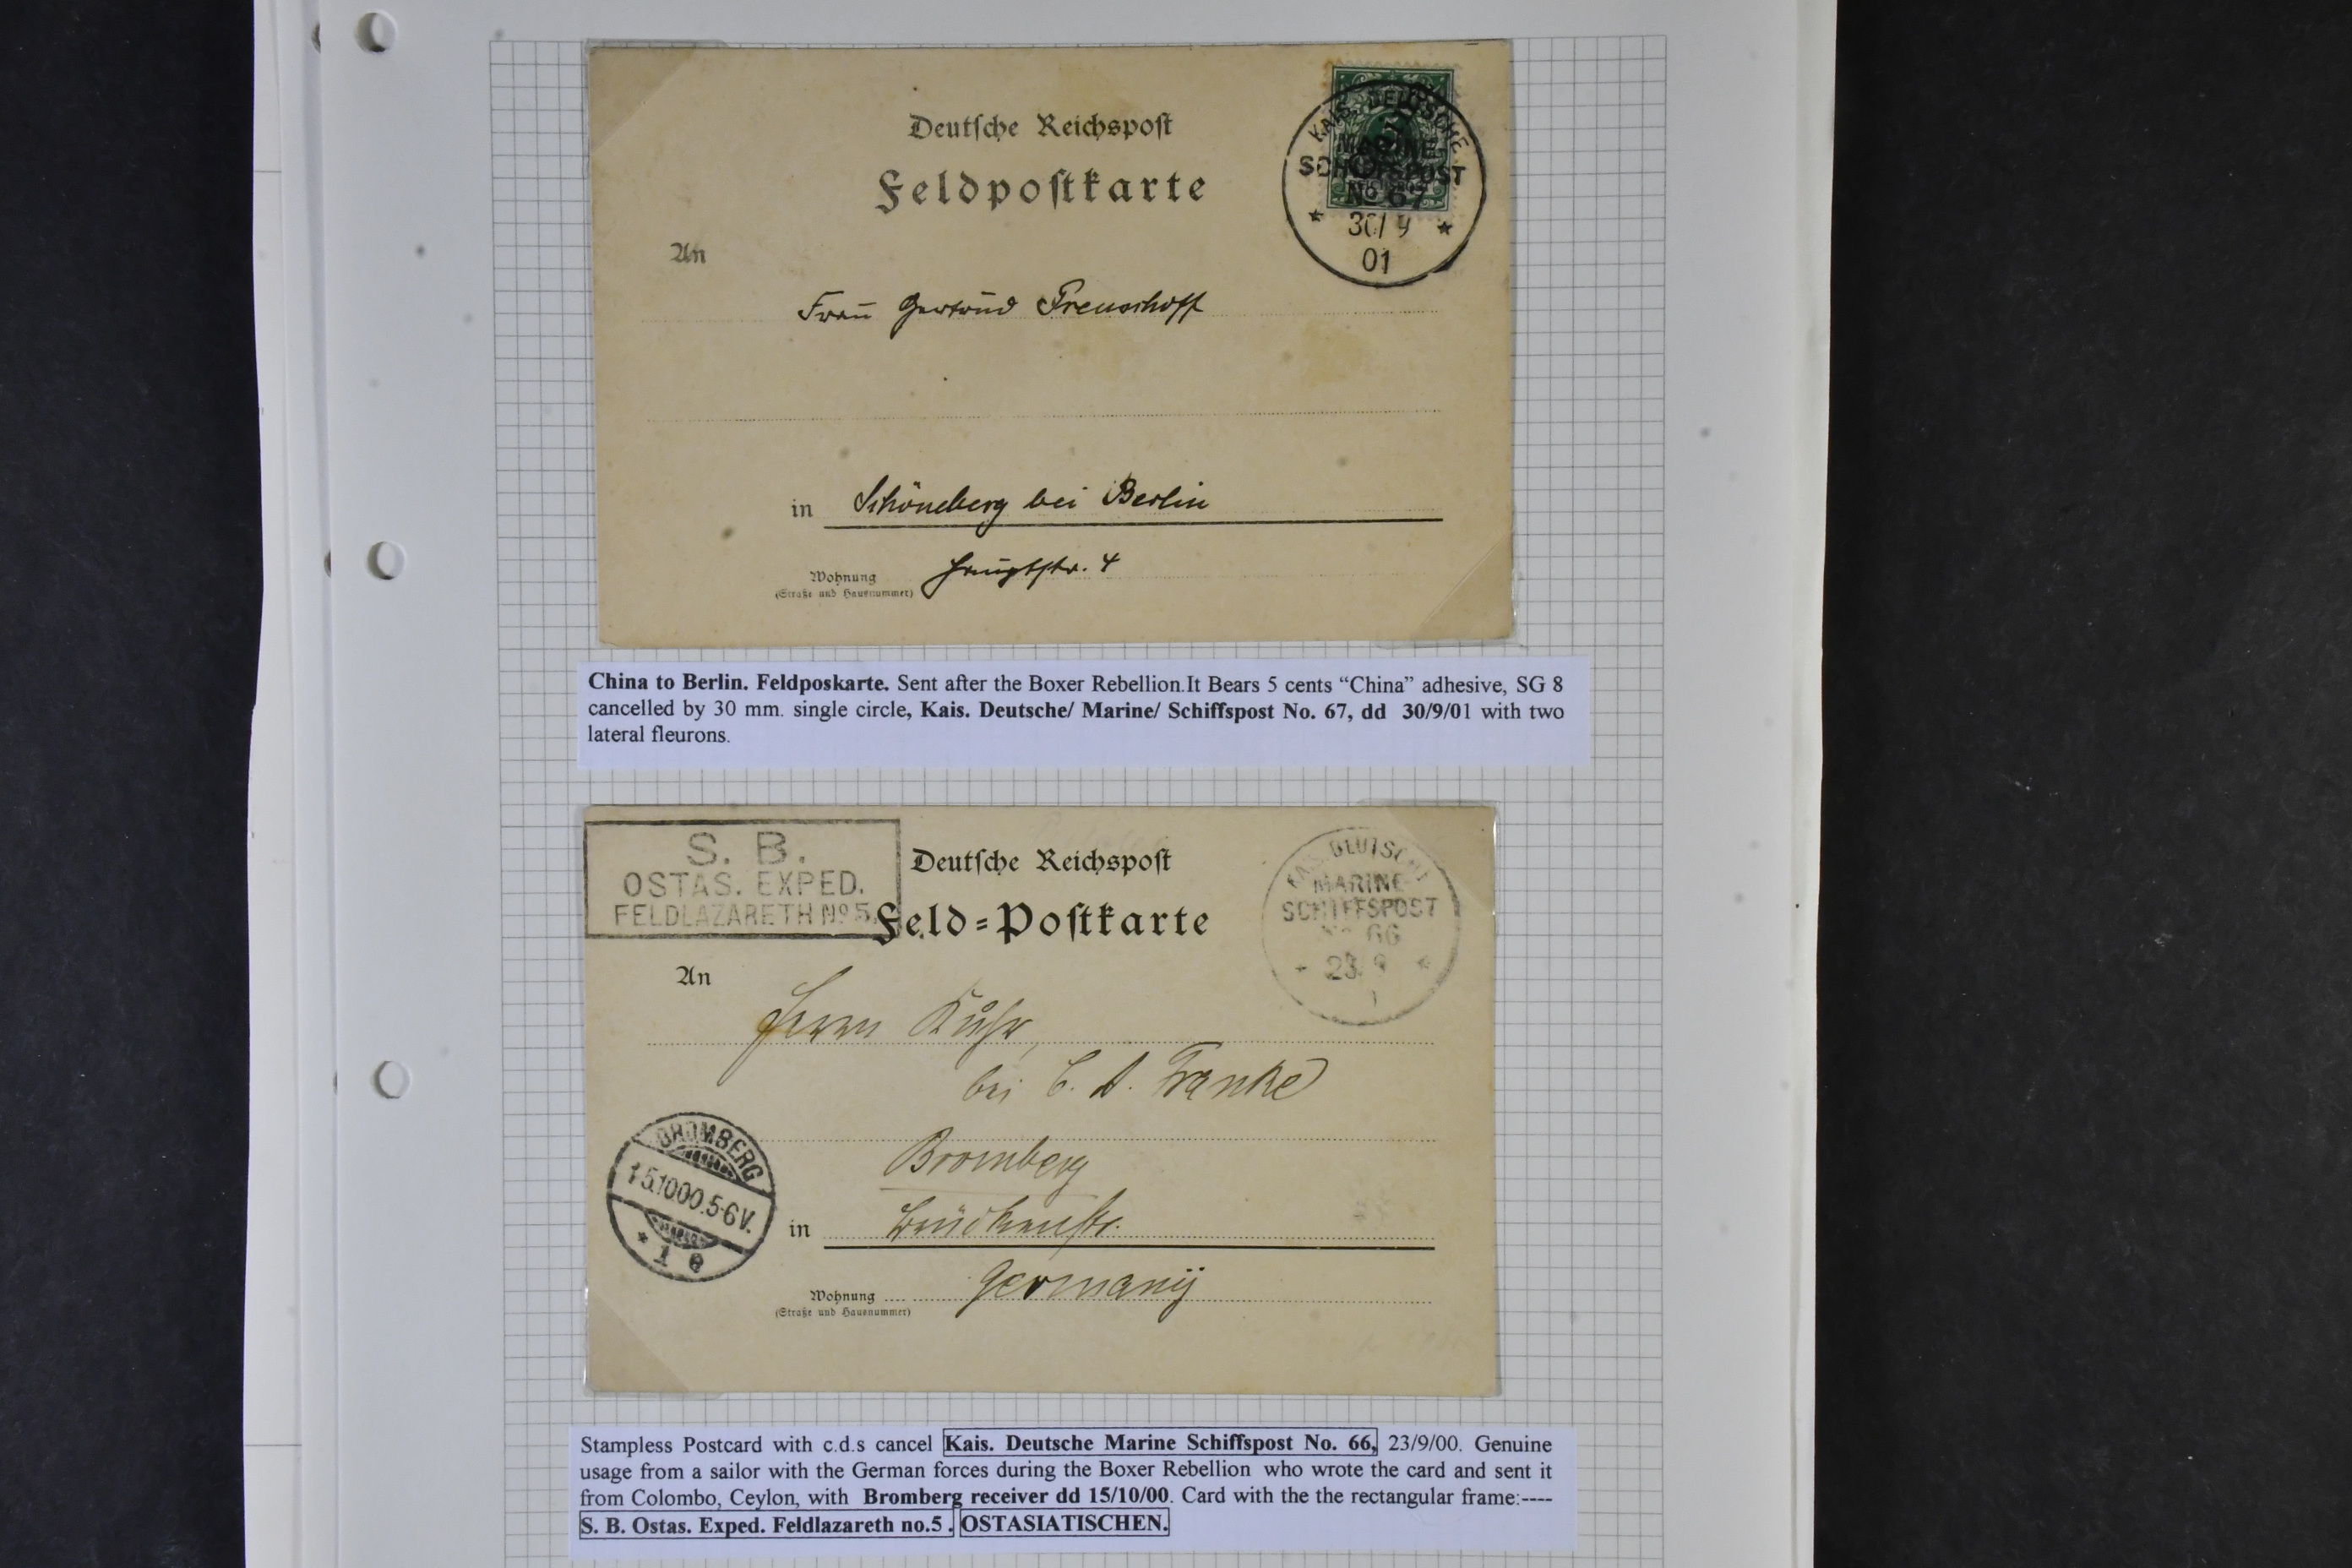 Deutsche Reichspost
Feldpostkarte
KAIS. DEUTSCHE
MARINE-
SCHIFFSPOST
No 67
30/9
01
An
Frau Gertrud Preuschoff
in Schöneberg bei Berlin
Wohnung Hauptstr. 4
(Straße und Hausnummer)
China to Berlin. Feldposkarte. Sent after the Boxer Rebellion.It Bears 5 cents “China” adhesive, SG 8
cancelled by 30 mm. single circle, Kais. Deutsche/ Marine/ Schiffspost No. 67, dd 30/9/01 with two
lateral fleurons.
S. B.
OSTAS. EXPED.
FELDLAZARETH No 5.
Deutsche Reichspost
Feld-Postkarte
KAIS. DEUTSCHE
MARINE
SCHIFFSPOST
No 66
23 9
An
Herrn Kühr,
bei C. A. Franke
Bromberg
BROMBERG
15.10.00.5-6V.
1 e
in Brückenstr.
Wohnung Germany
(Straße und Hausnummer)
Stampless Postcard with c.d.s cancel Kais. Deutsche Marine Schiffspost No. 66, 23/9/00. Genuine
usage from a sailor with the German forces during the Boxer Rebellion who wrote the card and sent it
from Colombo, Ceylon, with Bromberg receiver dd 15/10/00. Card with the the rectangular frame:----
S. B. Ostas. Exped. Feldlazareth no.5 . OSTASIATISCHEN.